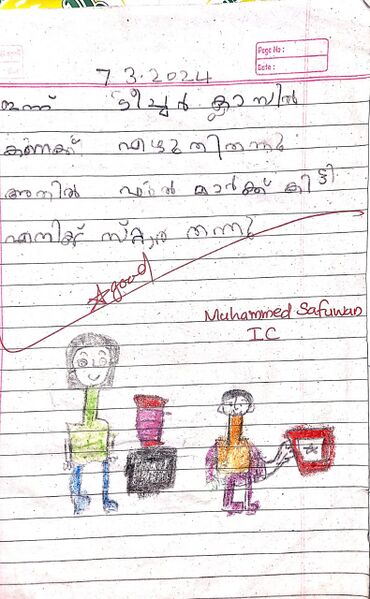 Page No :
Date :
7.3.2024
ഇന്ന് ടീച്ചർ ക്ലാസിൽ
കണക്ക് എഴുതിതന്നു
അതിൽ ഫുൾ മാർക്ക് കിട്ടി
എനിക്ക് സ്റ്റാർ തന്നു
good
Muhammed Safuwan
IC